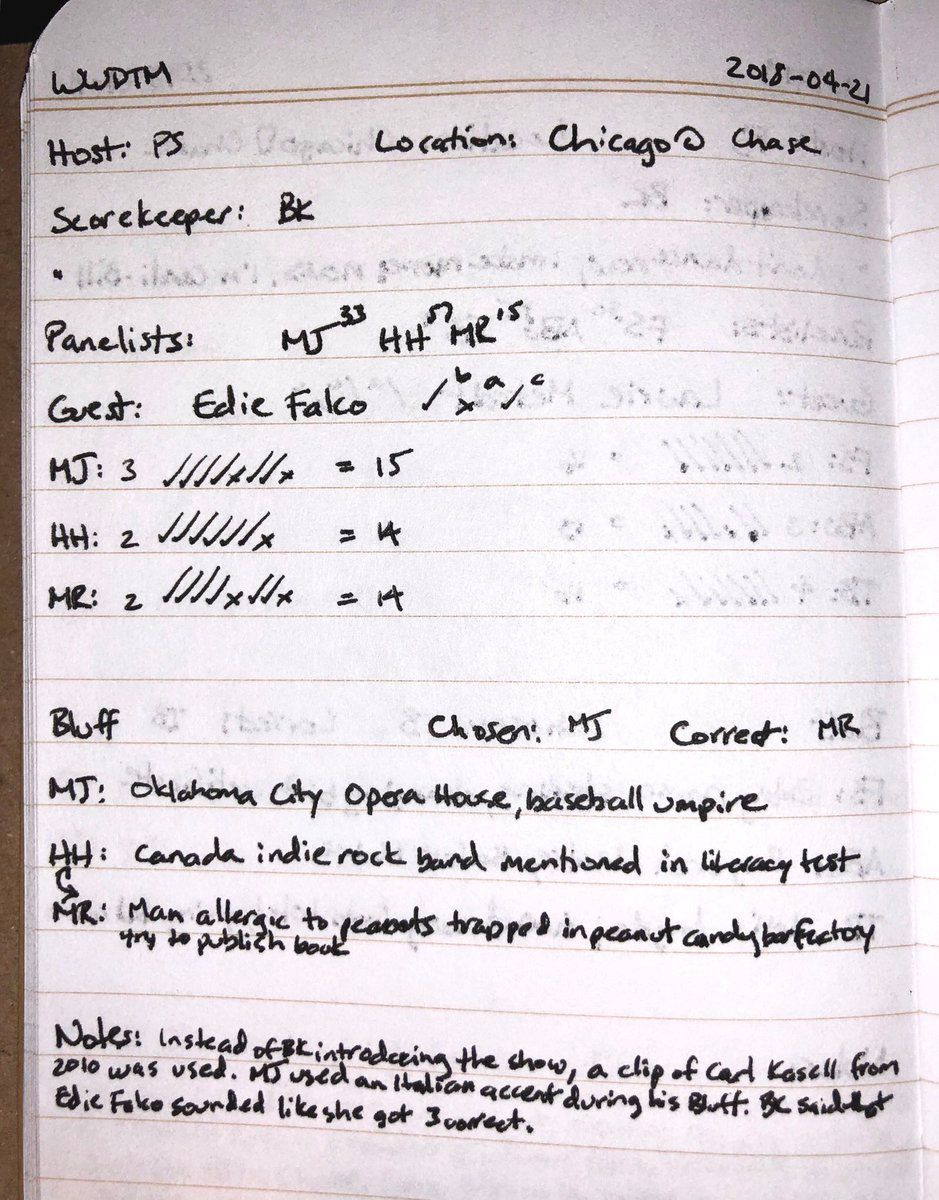 WWDTM 2018-04-21
Host: PS Location: Chicago @ Chase
Scorekeeper: BK
•
Panelists: MJ 33 HH 57 MR 15
Guest: Edie Falco ✓ b x a ✓ c
MJ: 3 ✓✓✓✓x✓✓x = 15
HH: 2 ✓✓✓✓✓✓x = 14
MR: 2 ✓✓✓✓x✓✓x = 14
Bluff Chosen: MJ Correct: MR
MJ: Oklahoma City Opera House, baseball umpire
HH: Canada indie rock band mentioned in literacy test
MR: Man allergic to peanuts trapped in peanut candy bar factory
try to publish book
Notes: Instead of BK introducing the show, a clip of Carl Kasell from
2010 was used. MJ used an Italian accent during his Bluff. BK said that
Edie Falco sounded like she got 3 correct.